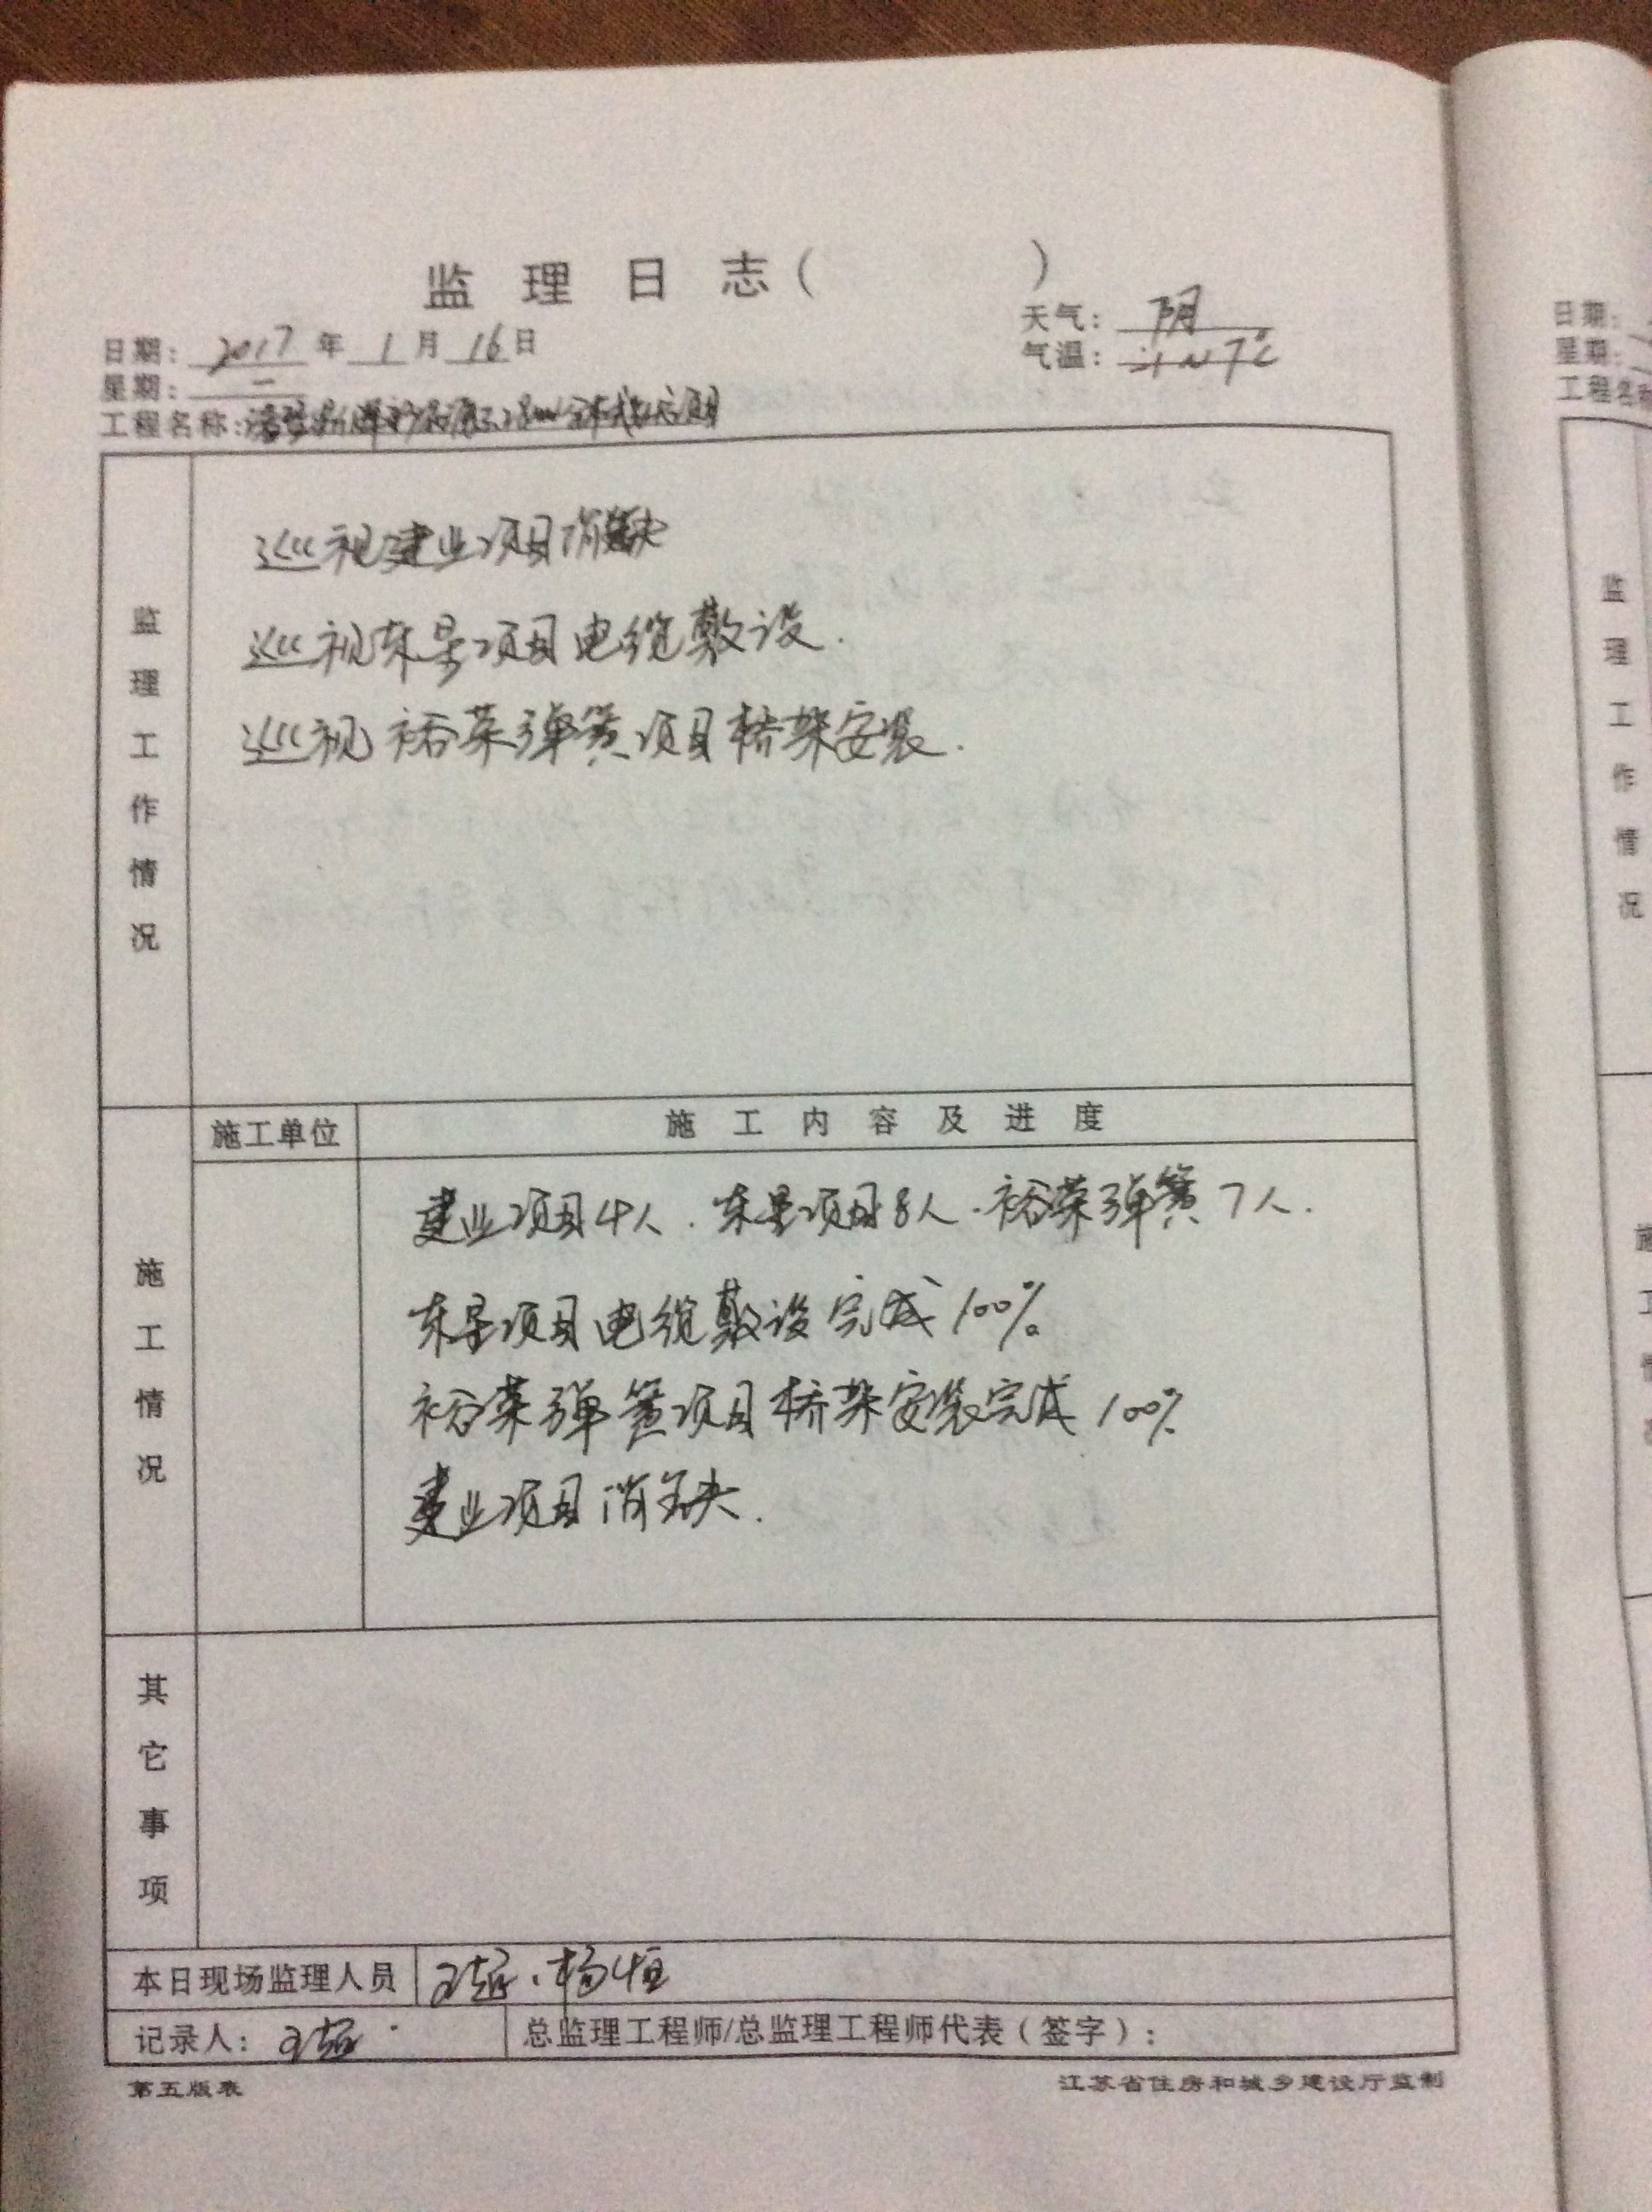 监理日志（ ）
日期：2017年1月16日
天气：阴
星期：二
气温：7℃
工程名称：
监理工作情况
巡视建业项目消缺
巡视东昇项目电缆敷设.
巡视裕荣弹簧项目桥架安装.
施工情况
施工单位
施工内容及进度
建业项目4人.东昇项目8人.裕荣弹簧7人.
东昇项目电缆敷设完成100%
裕荣弹簧项目桥架安装完成100%
建业项目消缺.
其它事项
本日现场监理人员 王超、杨恒
记录人：王超
总监理工程师/总监理工程师代表（签字）：
第五版表
江苏省住房和城乡建设厅监制
日期：
星期：
工程名称
监理工作情况